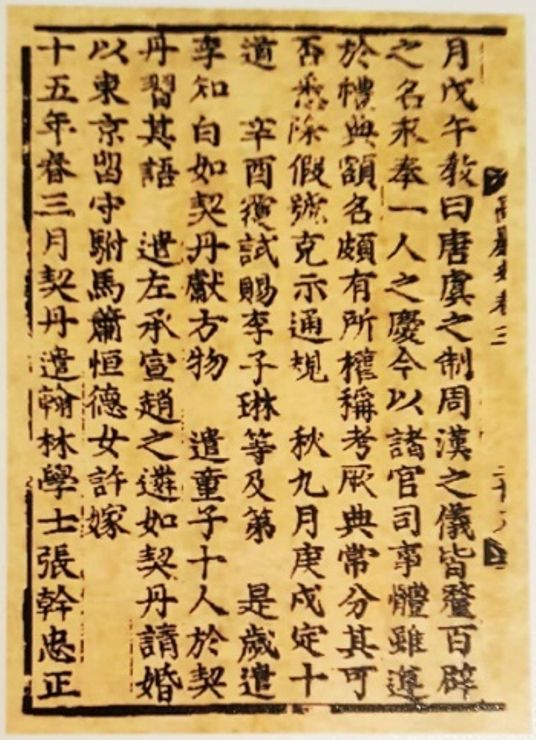 高麗史卷三
月戊午敎曰唐虞之制周漢之儀皆釐百辟
之名永奉一人之慶今以諸官司事體雖遵
於禮典額名頗有所權稱考厥典常分其可
否悉除假號克示通規 秋九月庚戌定十
道 辛酉覆試賜李子琳等及第 是歲遣
李知白如契丹獻方物 遣童子十人於契
丹習其語 遣左承宣趙之遴如契丹請婚
以東京留守駙馬蕭恒德女許嫁
十五年春三月契丹遣翰林學士張幹忠正